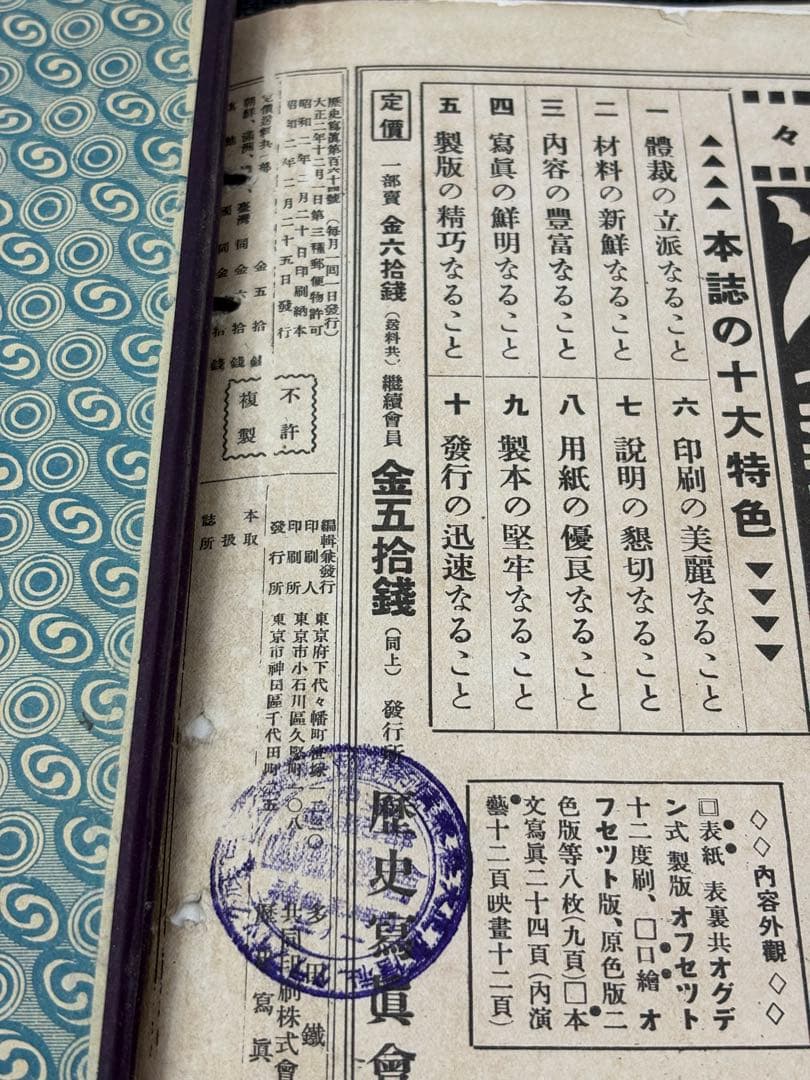 々
▲▲▲▲本誌の十大特色▼▼▼▼
一 體裁の立派なること
二 材料の新鮮なること
三 內容の豐富なること
四 寫眞の鮮明なること
五 製版の精巧なること
六 印刷の美麗なること
七 說明の懇切なること
八 用紙の優良なること
九 製本の堅牢なること
十 發行の迅速なること
◇◇內容外觀◇◇
□表紙 表裏共オグデ
ン式製版オフセツト
十二度刷、□口繪 オ
フセツト版、原色版二
色版等八枚(九頁)□本
文寫眞二十四頁(內演
藝十二頁映畫十二頁)
定價 一部賣 金六拾錢(送料共)繼續會員 金五拾錢(同上) 發行所 歷史寫眞會
歷史寫眞第百六十四號 (每月一回一日發行)
大正二年十二月一日第三種郵便物許可
昭和二年二月二十日印刷納本
昭和二年二月二十五日發行
定價送料共一部 金五拾錢
朝鮮、滿洲、臺灣 同 金六拾錢
同 金 拾錢
不許
複製
編輯兼發行
印刷人
印刷所
發行所
東京府下代々幡町
東京市小石川區久堅町一〇八
東京市神田區千代田町
多田 鐵
共同印刷株式會
歷史寫眞
本誌
取扱所